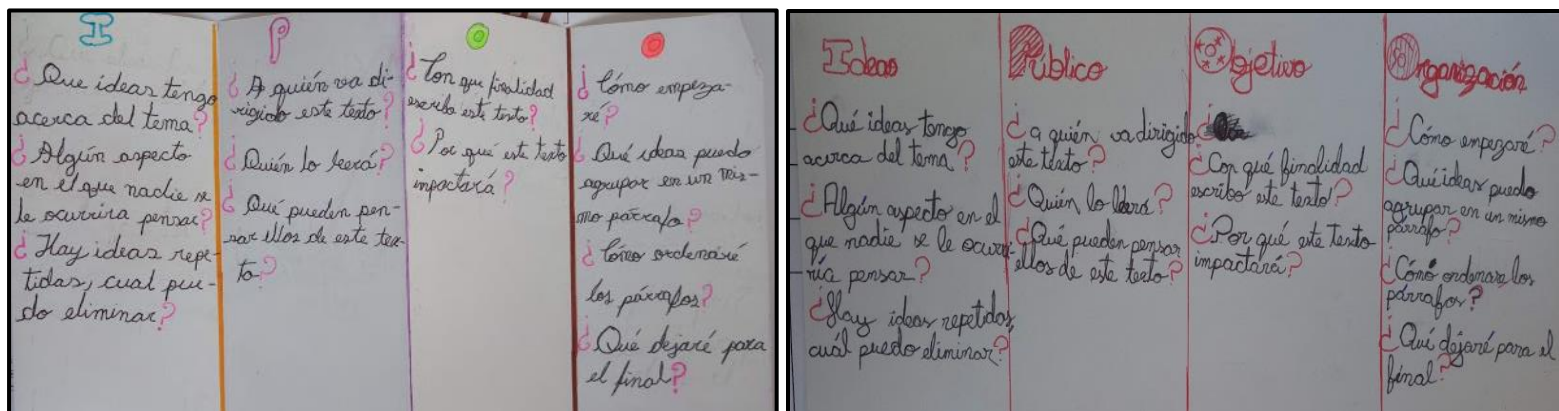 I
¿Que ideas tengo
acerca del tema?
¿Algún aspecto
en el que nadie se
le ocurrira pensar?
¿Hay ideas repe-
tidas, cual pue-
do eliminar?
P
¿A quién va di-
rigido este texto?
¿Quién lo leerá?
¿Qué pueden pen-
sar ellos de este tex-
to?
O
¿Con que finalidad
escribo este texto?
¿Por qué este texto
impactará?
O
¿Cómo empeza-
ré?
¿Qué ideas puedo
agrupar en un mis-
mo párrafo?
¿Cómo ordenaré
los párrafos?
¿Qué dejaré para
el final?
Ideas
¿Qué ideas tengo
acerca del tema?
¿Algún aspecto en el
que nadie se le ocurri-
ría pensar?
¿Hay ideas repetidas,
cuál puedo eliminar?
Público
¿a quién va dirigido
este texto?
¿Quién lo leerá?
¿Qué pueden pensar
ellos de este texto?
Objetivo
¿Con qué finalidad
escribo este texto?
¿Por qué este texto
impactará?
Organización
¿Cómo empezaré?
¿Qué ideas puedo
agrupar en un mismo
párrafo?
¿Cómo ordenare los
párrafos?
¿Qué dejaré para el
final?